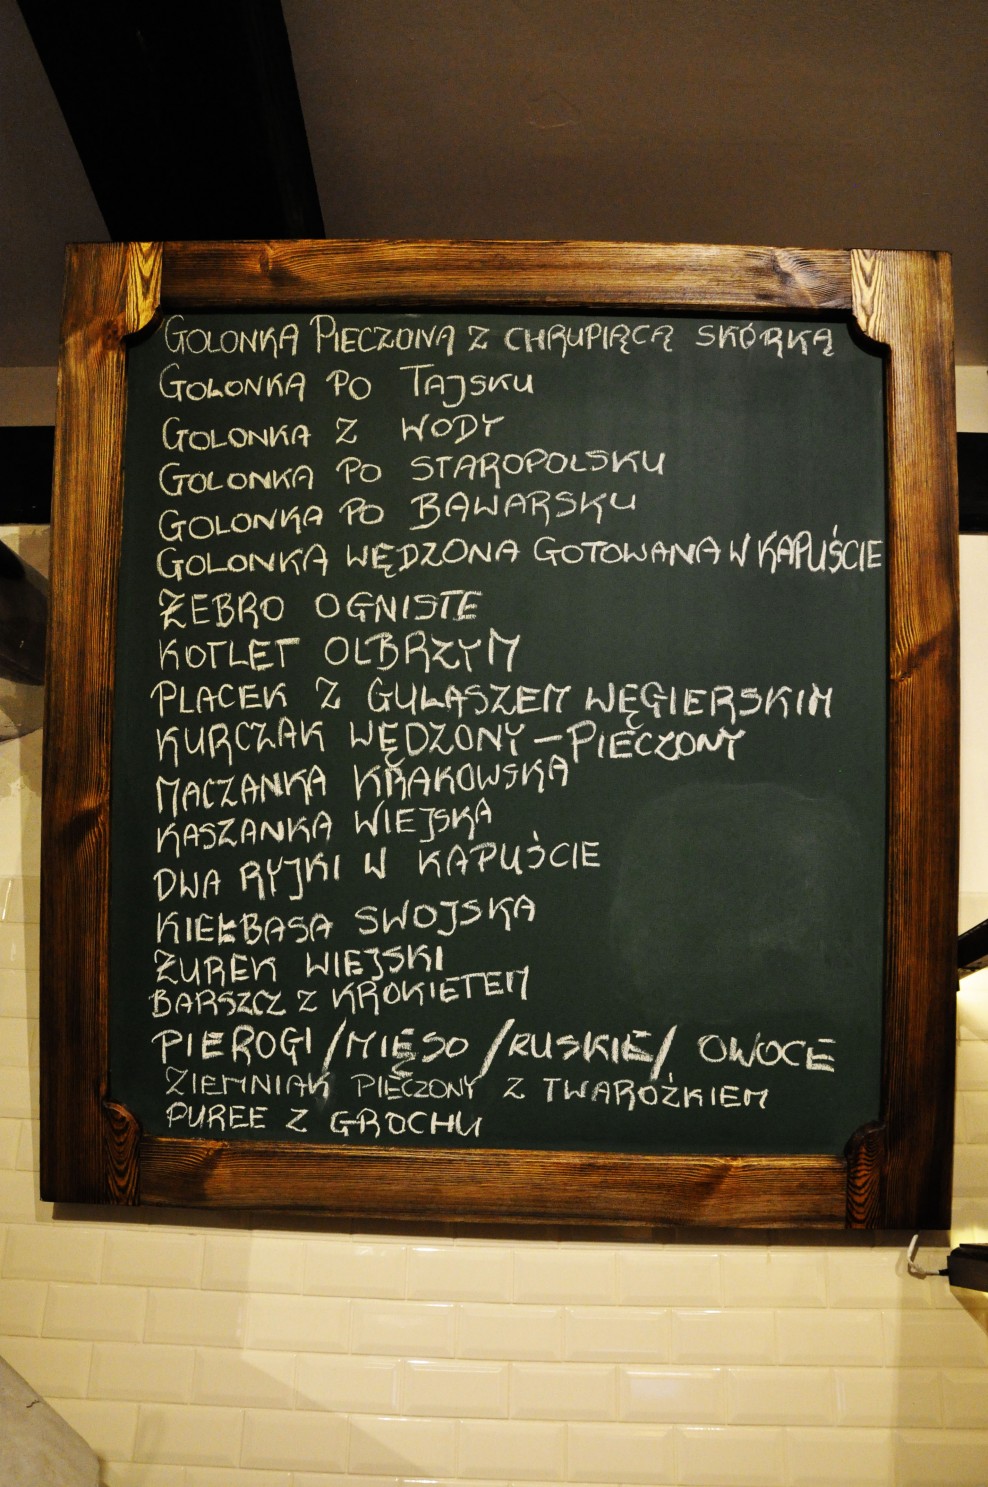 GOLONKA PIECZONA Z CHRUPIĄCĄ SKÓRKĄ
GOLONKA PO TAJSKU
GOLONKA Z WODY
GOLONKA PO STAROPOLSKU
GOLONKA PO BAWARSKU
GOLONKA WĘDZONA GOTOWANA W KAPUŚCIE
ŻEBRO OGNISTE
KOTLET OLBRZYM
PLACEK Z GULASZEM WĘGIERSKIM
KURCZAK WĘDZONY – PIECZONY
MACZANKA KRAKOWSKA
KASZANKA WIEJSKA
DWA RYJKI W KAPUŚCIE
KIEŁBASA SWOJSKA
ŻUREK WIEJSKI
BARSZCZ Z KROKIETEM
PIEROGI/MIĘSO/RUSKIE/ OWOCE
ZIEMNIAK PIECZONY Z TWAROŻKIEM
PUREE Z GROCHU